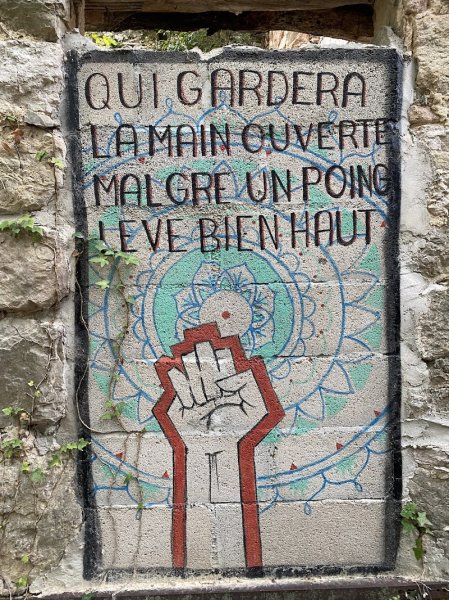 QUI GARDERA
LA MAIN OUVERTE
MALGRÉ UN POING
LEVE BIEN HAUT